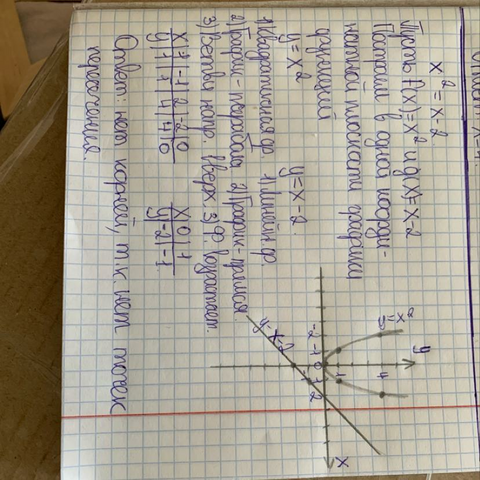 x² = x - 2
Пусть f(x) = x² и g(x) = x - 2
Построим в одной коорди-
натной плоскости графики
функций
y = x²	y = x - 2
1) Квадратичная ф. 1) Линейн. ф.
2) График - парабола 2) График - прямая
3) Ветви напр. вверх 3) Ф. возрастает.
x | 1 | -1 | 2 | -2 | 0	x | 0 | 1
y | 1 | 1 | 4 | 4 | 0	y | -2 | -1
Ответ: нет корней, т.к. нет точек
пересечения.
y
y = x²
4
1
-2 -1 0 1 2
x
y = x - 2